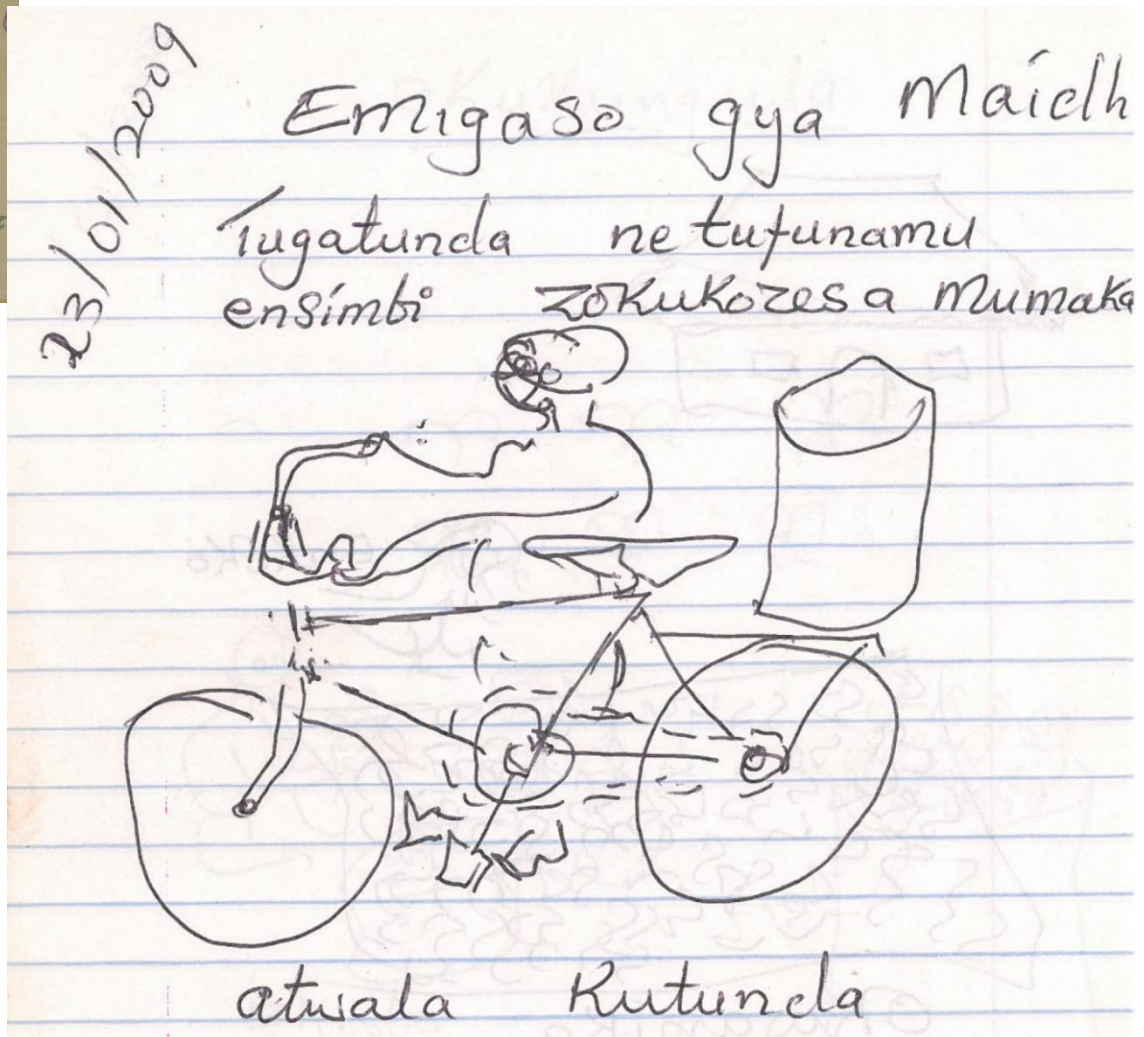 23/01/2009
Emigaso gya Maidh
Tugatunda ne tufunamu
ensimbi zokukozesa mumaka
atwala Kutunda